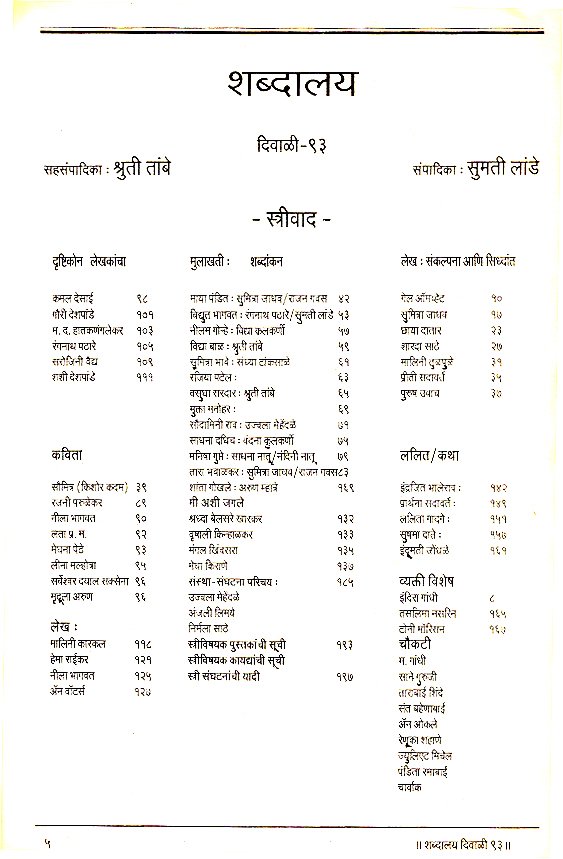 शब्दालय
दिवाळी-९३
सहसंपादिका : श्रुती तांबे
संपादिका : सुमती लांडे
- स्त्रीवाद -
दृष्टिकोन लेखकांचा
कमल देसाई ९८
गौरी देशपांडे १०१
म. द. हातकणंगलेकर १०३
रंगनाथ पठारे १०५
सरोजिनी वैद्य १०९
शशी देशपांडे १११
कविता
सौमित्र (किशोर कदम) ३९
रजनी परुळेकर ८९
नीला भागवत ९०
लता प्र. म. ९२
मेघना पेठे ९३
लीना मल्होत्रा ९५
सर्वेश्वर दयाल सक्सेना ९६
मृदूला अरुण ९६
लेख :
मालिनी कारकल ११८
हेमा राईकर १२१
नीला भागवत १२५
ॲन वॉटर्स १२७
मुलाखती : शब्दांकन
माया पंडित : सुमित्रा जाधव/राजन गवस ४२
विद्युत भागवत : रंगनाथ पठारे/सुमती लांडे ५३
नीलम गोऱ्हे : विद्या कलकर्णी ५७
विद्या बाळ : श्रुती तांबे ५९
सुमित्रा भावे : संध्या टांकसाळे ६१
रजिया पटेल : ६३
वसुधा सरदार : श्रुती तांबे ६५
मुक्ता मनोहर : ६९
सौदामिनी राव : उज्वला मेहेंदळे ७१
साधना दधिच : वंदना कुलकर्णी ७५
मनिषा गुप्ते : साधना नातू/नंदिनी नातू ७९
तारा भवाळकर : सुमित्रा जाधव/राजन गवस ८३
शांता गोखले : अरुण म्हात्रे १६९
मी अशी जगले
श्रध्दा बेलसरे खारकर १३२
वृषाली किन्हाळकर १३३
मंगल खिंवसरा १३५
मेधा किराणे १३७
संस्था-संघटना परिचय : १८५
उज्वला मेहेंदळे
अंजली लिमये
निर्मला साठे
स्त्रीविषयक पुस्तकांची सूची १९३
स्त्रीविषयक कायद्यांची सूची
स्त्री संघटनांची यादी १९७
लेख : संकल्पना आणि सिध्दांत
गेल ऑमव्हेट १०
सुमित्रा जाधव १७
छाया दातार २३
शारदा साठे २७
मालिनी तुळपुळे ३१
प्रीती सदावर्ते ३५
पुरुष उवाच ३७
ललित/कथा
इंद्रजित भालेराव : १४२
प्रार्थना सदावर्ते : १४९
ललिता गादगे : १५१
सुषमा दाते : १५७
इंदूमती जोंधळे १६१
व्यक्ती विशेष
इंदिरा गांधी ८
तसलिमा नसरिन १६५
टोनी मॉरिसन १६७
चौकटी
म. गांधी
साने गुरुजी
ताराबाई शिंदे
संत बहेणाबाई
ॲन ओकले
रेणूका शहाणे
ज्युलिएट मिचेल
पंडिता रमाबाई
चार्वाक
५
॥ शब्दालय दिवाळी ९३ ॥